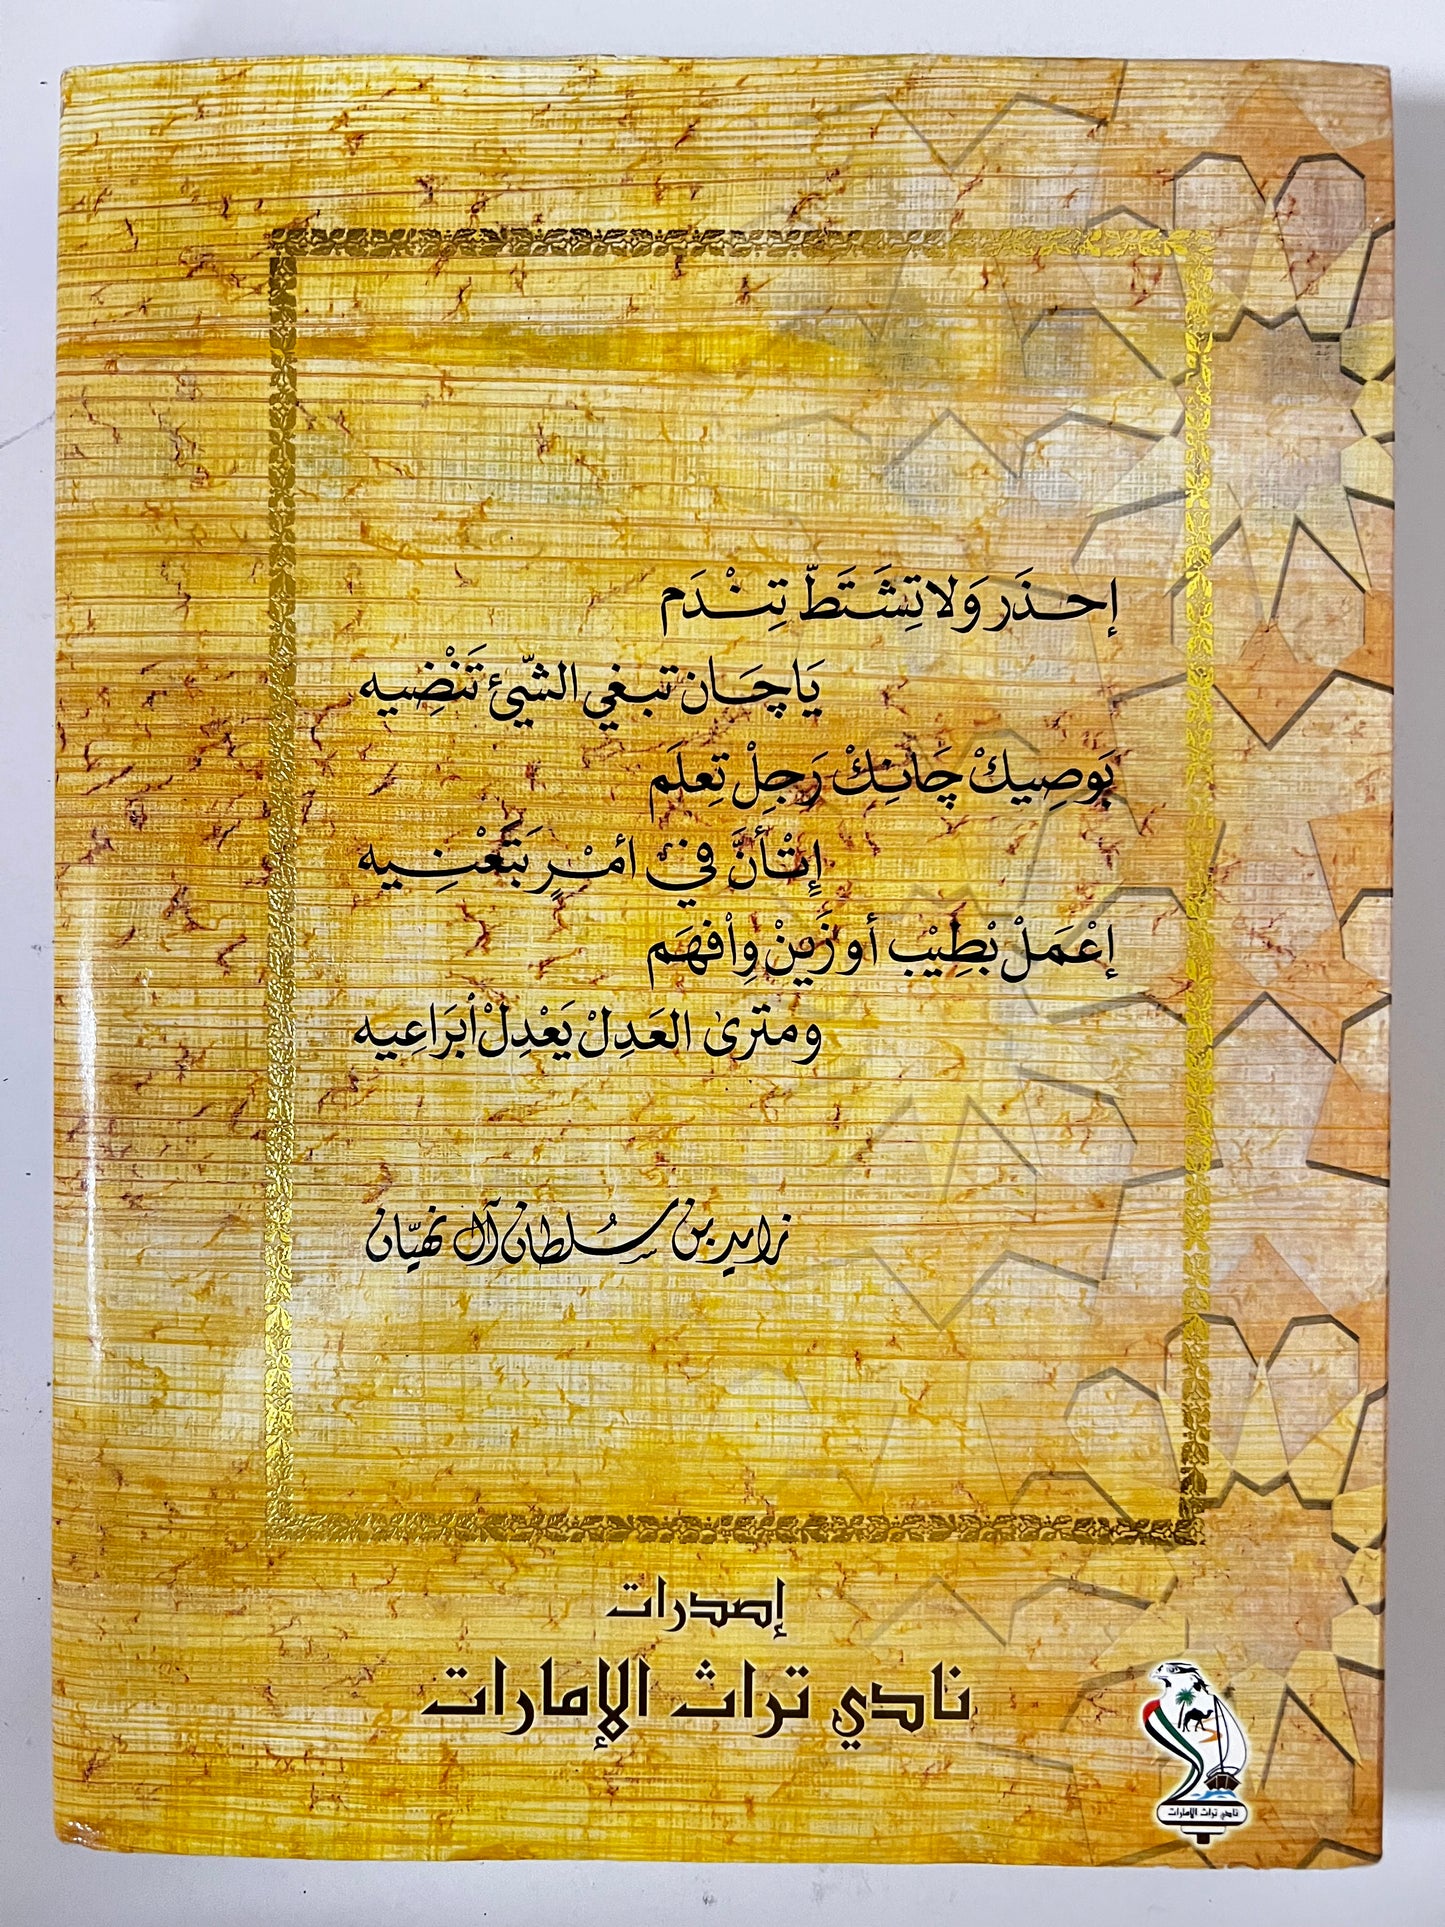 إحذَر وَلا تِشَتَطّ تِنْدَم
يَا چَان تبغي الشّيئ تَنْضِيه
بَوصِيكْ چَانِكْ رَجِلْ تِعلَم
إِتْأنَّ فيْ أمْرٍ بَتَعْنِيه
إعْمَلْ بْطِيْب أو زَينْ وِاْفهَم
ومترىٰ العَدِلْ يَعْدِلْ اْبرَاعِيه
زايد بن سُلطان آل نهيّان
إصدرات
نادي تراث الإمارات
نادي تراث الإمارات